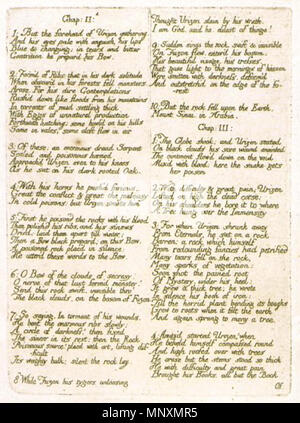 Chap: II:
1: But the forehead of Urizen gathering,
And his eyes pale with anguish, his lips
Blue & changing; in tears and bitter
Contrition he prepard his Bow,
2: Formd of Ribs: that in his dark solitude
When obscurd in his forests fell monsters,
Arose. For his dire Contemplations
Rushd down like floods from his mountains
In torrents of mud settling thick
With Eggs of unnatural production
Forthwith hatching; some howld on his hills
Some in vales; some aloft flew in air
3: Of these: an enormous dread Serpent
Scaled and poisonous horned
Approachd Urizen even to his knees
As he sat on his dark rooted Oak.
4: With his horns he pushd furious.
Great the conflict & great the jealousy
In cold poisons: but Urizen smote him
5: First he poisond the rocks with his blood
Then polishd his ribs, and his sinews
Dried; laid them apart till winter;
Then a Bow black prepard; on this Bow,
A poisoned rock placd in silence:
He utterd these words to the Bow.
6: O Bow of the clouds of secresy!
O nerve of that lust formd monster!
Send this rock swift, invisible thro'
The black clouds, on the bosom of Fuzon
7: So saying, In torment of his wounds,
He bent the enormous ribs slowly;
A circle of darkness! then fixed
The sinew in its rest: then the Rock
Poisonous source! placd with art, lifting dif-
ficult
Its weighty bulk: silent the rock lay.
8: While Fuzon his tygers unloosing
Thought Urizen slain by his wrath.
I am God. said he, eldest of things!
9: Sudden sings the rock, swift & invisible
On Fuzon flew, enterd his bosom;
His beautiful visage, his tresses,
That gave light to the mornings of heaven
Were smitten with darkness, deformd
And outstretchd on the edge of the fo-
rest
10: But the rock fell upon the Earth,
Mount Sinai, in Arabia.
Chap: III:
1: The Globe shook; and Urizen seated
On black clouds his sore wound anointed
The ointment flowd down on the void
Mixd with blood; here the snake gets
her poison
2: With difficulty & great pain; Urizen
Lifted on high the dead corse:
On his shoulders he bore it to where
A Tree hung over the Immensity
3: For when Urizen shrunk away
From Eternals, he sat on a rock
Barren; a rock which himself
From redounding fancies had petrified
Many tears fell on the rock,
Many sparks of vegetation;
Soon shot the pained root
Of Mystery, under his heel:
It grew a thick tree; he wrote
In silence his book of iron:
Till the horrid plant bending its boughs
Grew to roots when it felt the earth
And again sprung to many a tree.
4: Amazd started Urizen! when
He beheld himself compassed round
And high roofed over with trees
He arose but the stems stood so thick
He with difficulty and great pain
Brought his Books, all but the Book
Of
alamy
Image ID: MNXMR5
www.alamy.com